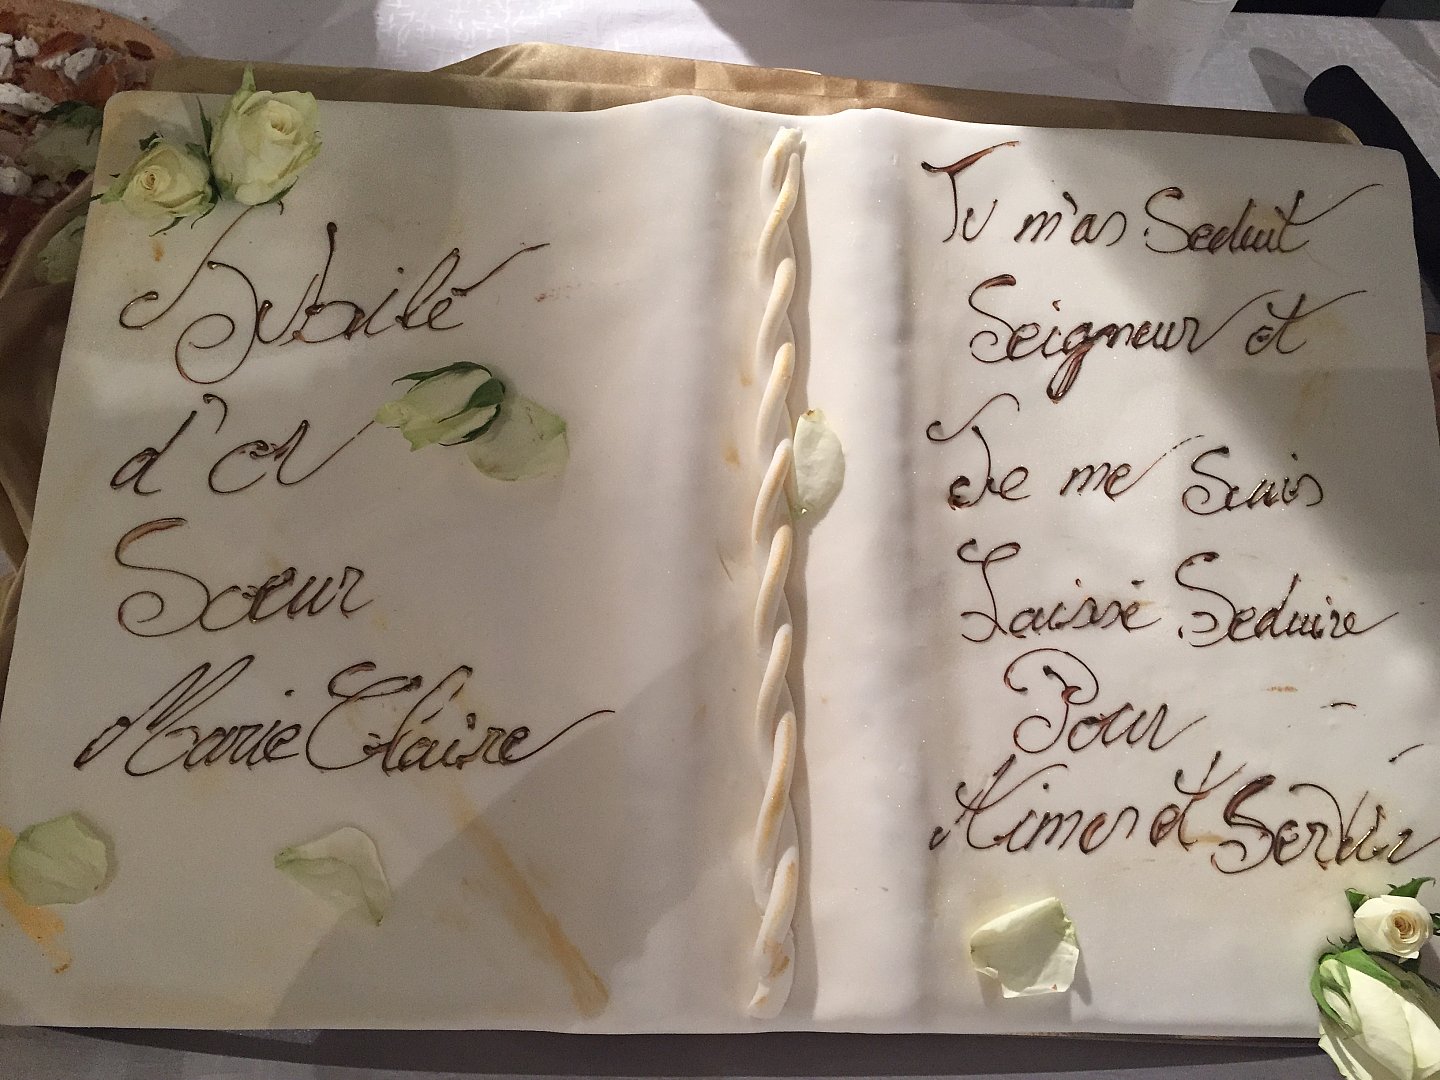 Jubilé
d'or
Sœur
Marie Claire
Tu m'as Seduit
Seigneur et
Je me Suis
Laissé Seduire
Pour
Aimer et Servir